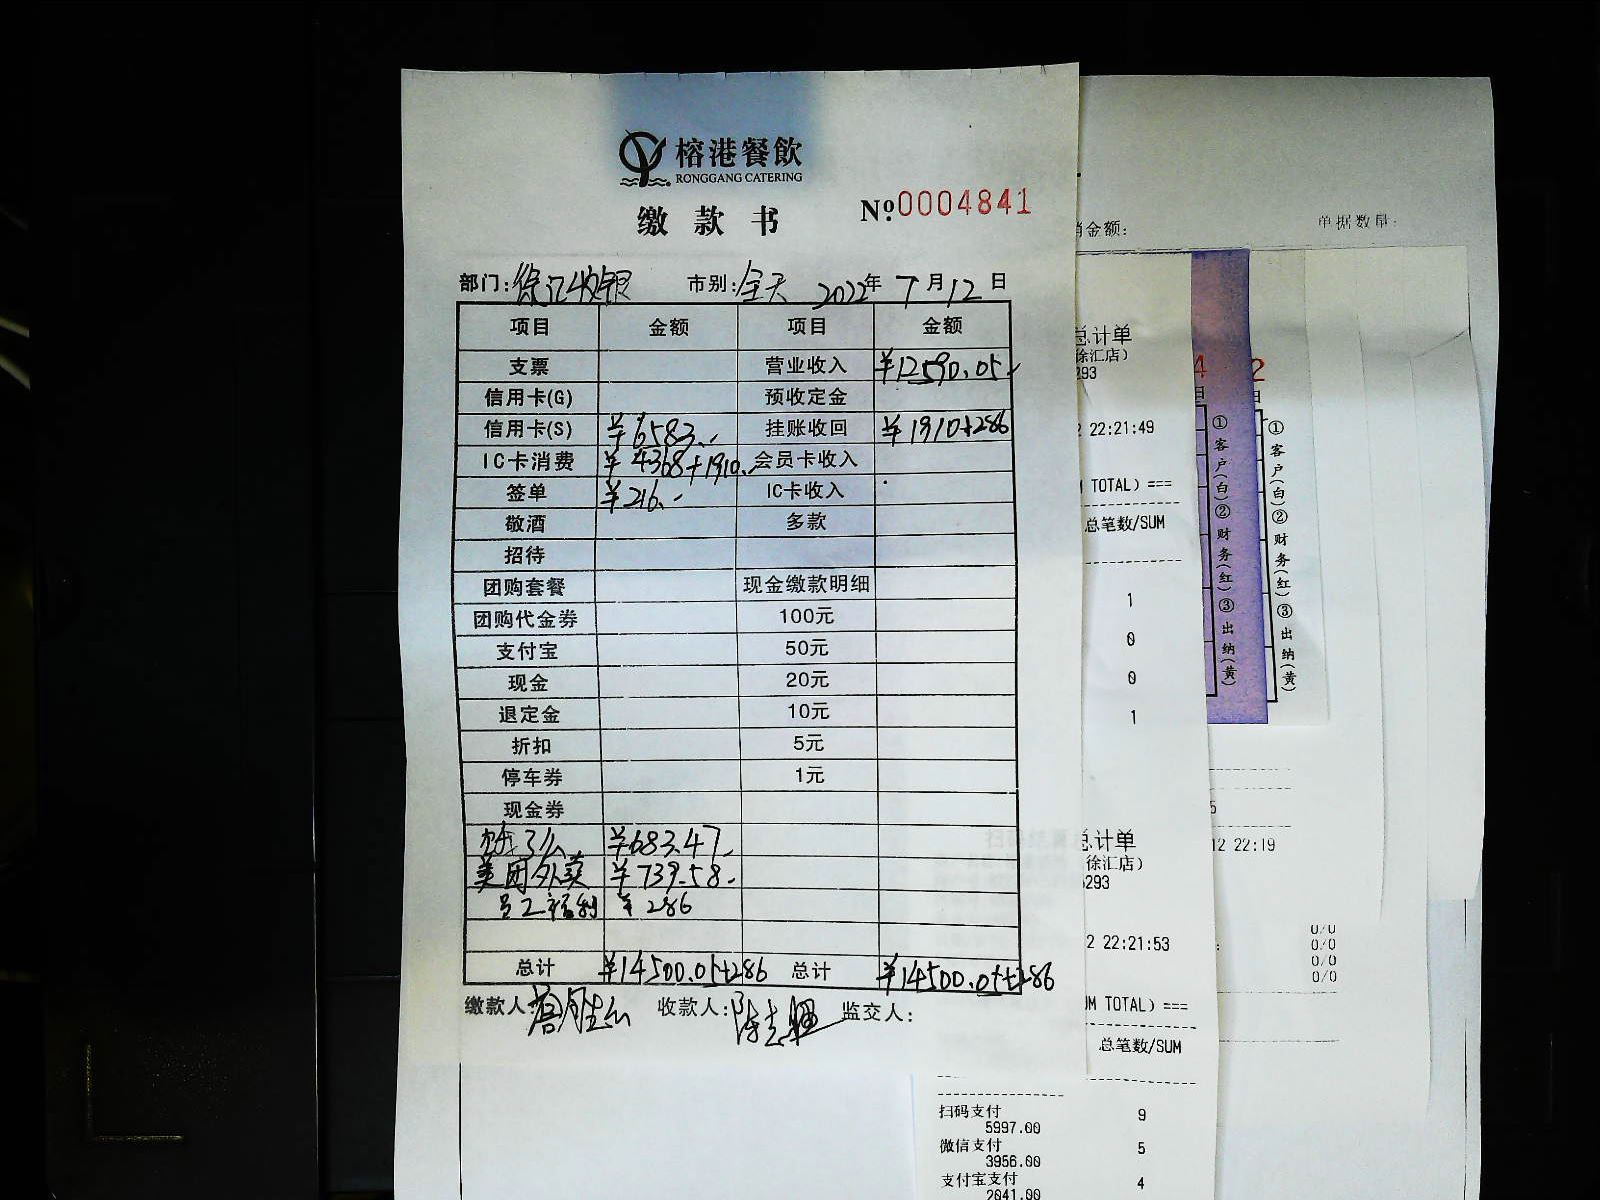 榕港餐飲
RONGGANG CATERING
缴款书 №0004841
部门:徐汇收银 市别:全天 2022年7月12日
项目 金额 项目 金额
支票 营业收入 ¥12590.05
信用卡(G) 预收定金
信用卡(S) ¥6583.- 挂账收回 ¥1910+286
IC卡消费 ¥4368+1910.- 会员卡收入
签单 ¥216.- IC卡收入
敬酒 多款
招待
团购套餐 现金缴款明细
团购代金券 100元
支付宝 50元
现金 20元
退定金 10元
折扣 5元
停车券 1元
现金券
饿了么 ¥683.47
美团外卖 ¥739.58.-
员工福利 ¥286
总计 ¥14500.05+286 总计 ¥14500.05+286
缴款人: 收款人: 监交人:
销金额: 单据数量:
总计单
徐汇店)
293
2 22:21:49
TOTAL) ===
总笔数/SUM
1
0
0
1
4
日
①客户(白)②财务(红)③出纳(黄)
2
日
①客户(白)②财务(红)③出纳(黄)
5
12 22:19
0/0
0/0
0/0
0/0
总计单
徐汇店)
293
2 22:21:53
UM TOTAL) ===
总笔数/SUM
扫码支付 9
5997.00
微信支付 5
3956.00
支付宝支付 4
2041.00